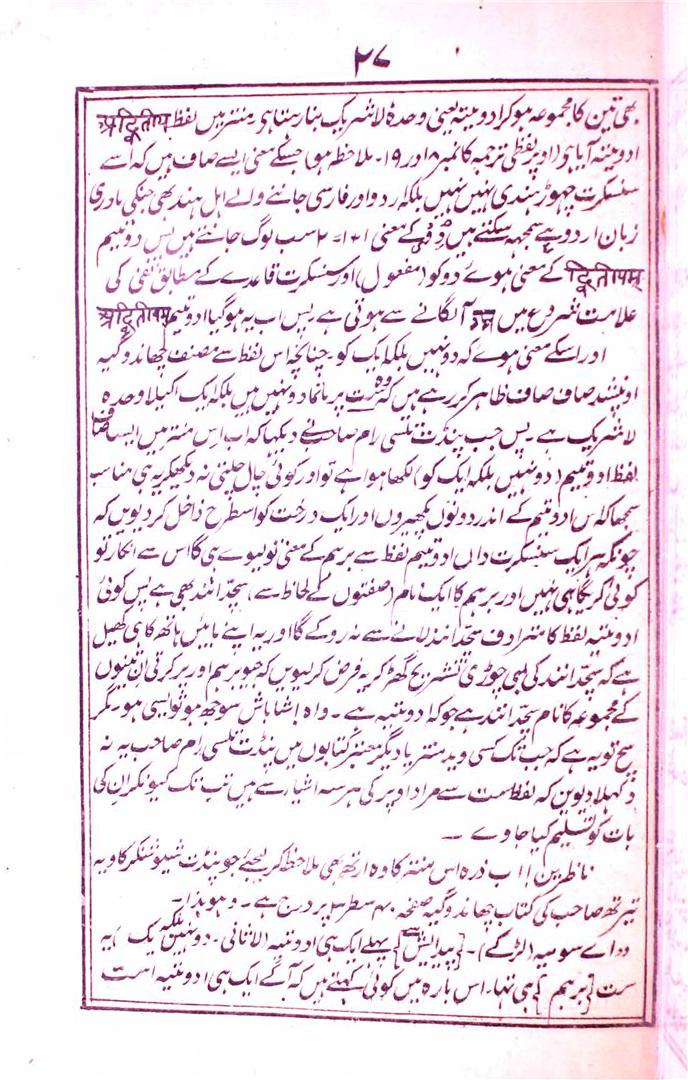 ۲۷
بھی تین کا مجموعہ ہوکر ادومیتہ یعنی وحدہٗ لاشریک بنا رہتا ہی۔ منتر میں لفظ अद्वितीय
ادومیتہ آیا ہی (اوپر لفظی ترجمہ کا نمبر ۸ اور ۱۹۔ ملاحظہ ہو) جسکے معنی ایسے صاف ہیں کہ اُسے
سنسکرت چھوڑ ہندی نہیں نہیں بلکہ اردو اور فارسی جاننے والے اہل ہند بھی جنکی مادری
زبان اردو ہے سمجھ سکتے ہیں کے معنی ۱+۱=۲ سب لوگ جانتے ہیں پس دوتییم
द्वितीयम् کے معنی ہوے دو کو (مفعول) اور سنسکرت قاعدے کے مطابق نفی کی
علامت شروع میں अ آ لگانے سے ہوتی ہے۔ پس اب یہ ہوگیا ادوتییم अद्वितीयम्
اور اسکے معنی ہوے کہ دو نہیں بلکہ ایک کو۔ چنانچہ اس لفظ سے مصنف چھاندوگیہ
اوپنیشد صاف صاف ظاہر کر رہے ہیں کہ وہ ست پرماتما دو نہیں ہیں بلکہ ایک اکیلا وحدہ
لاشریک ہے۔ پس جب پنڈت تلسی رام صاحب نے دیکھا کہ اب اس منتر میں ایسا صاف
لفظ ادوتییم (دو نہیں بلکہ ایک کو) لکھا ہوا ہے تو اور کوئی چال چلتی نہ دیکھکر یہی مناسب
سمجھا کہ اس ادوتییم کے اندر دونوں پکھیروں اور ایک درخت کو اسطرح داخل کر دیویں کہ
چونکہ ہر ایک سنسکرت داں ادوتییم لفظ سے برہم کے معنی تو لیوے ہی گا اس سے انکار تو
کوئی کریگا ہی نہیں اور برہم کا ایک نام (صفتوں کے لحاظ سے) سچدانند بھی ہے پس کوئی
ادوتییہ لفظ کا مترادف سچدانند لانے سے نہ روکے گا اور یہ اپنے بائیں ہاتھ کا ہی کھیل
ہے کہ سچدانند کی لمبی چوڑی تشریح گھڑ کر یہ فرض کر لیویں کہ جیو برہم اور پرکرتی ان تینوں
کے مجموعہ کا نام سچدانند ہے جو کہ ادوتییہ ہے۔ واہ! شاباش سوجھ ہو تو ایسی ہو۔ مگر
سچ تو یہ ہے کہ جب تک کسی وید منتر یا دیگر معتبر کتابوں میں پنڈت تلسی رام صاحب یہ نہ
دکھلا دیویں کہ لفظ ست سے مراد اوپر کی ہر سہ اشیا سے ہیں تب تک کیونکر ان کی
بات کو تسلیم کیا جاوے ۔۔
ناظرین! اب ذرہ اس منتر کا وہ ارتھ بھی ملاحظ کر لیجئے جو پنڈت شیو شنکر کاویہ
تیرتھ صاحب کی کتاب چھاندوگیہ صفحہ سطر ۳ پر درج ہے۔ وھو ہذا۔
وو اے سومیہ (لڑکے)۔ {پیدایش سے} پہلے ایک ہی ادوتییہ (لاثانی۔ دو نہیں بلکہ ایک) یہ
ست {برہم} ہی تھا۔ اس بارہ میں کوئی کہتے ہیں کہ آگے ایک ہی ادوتییہ است